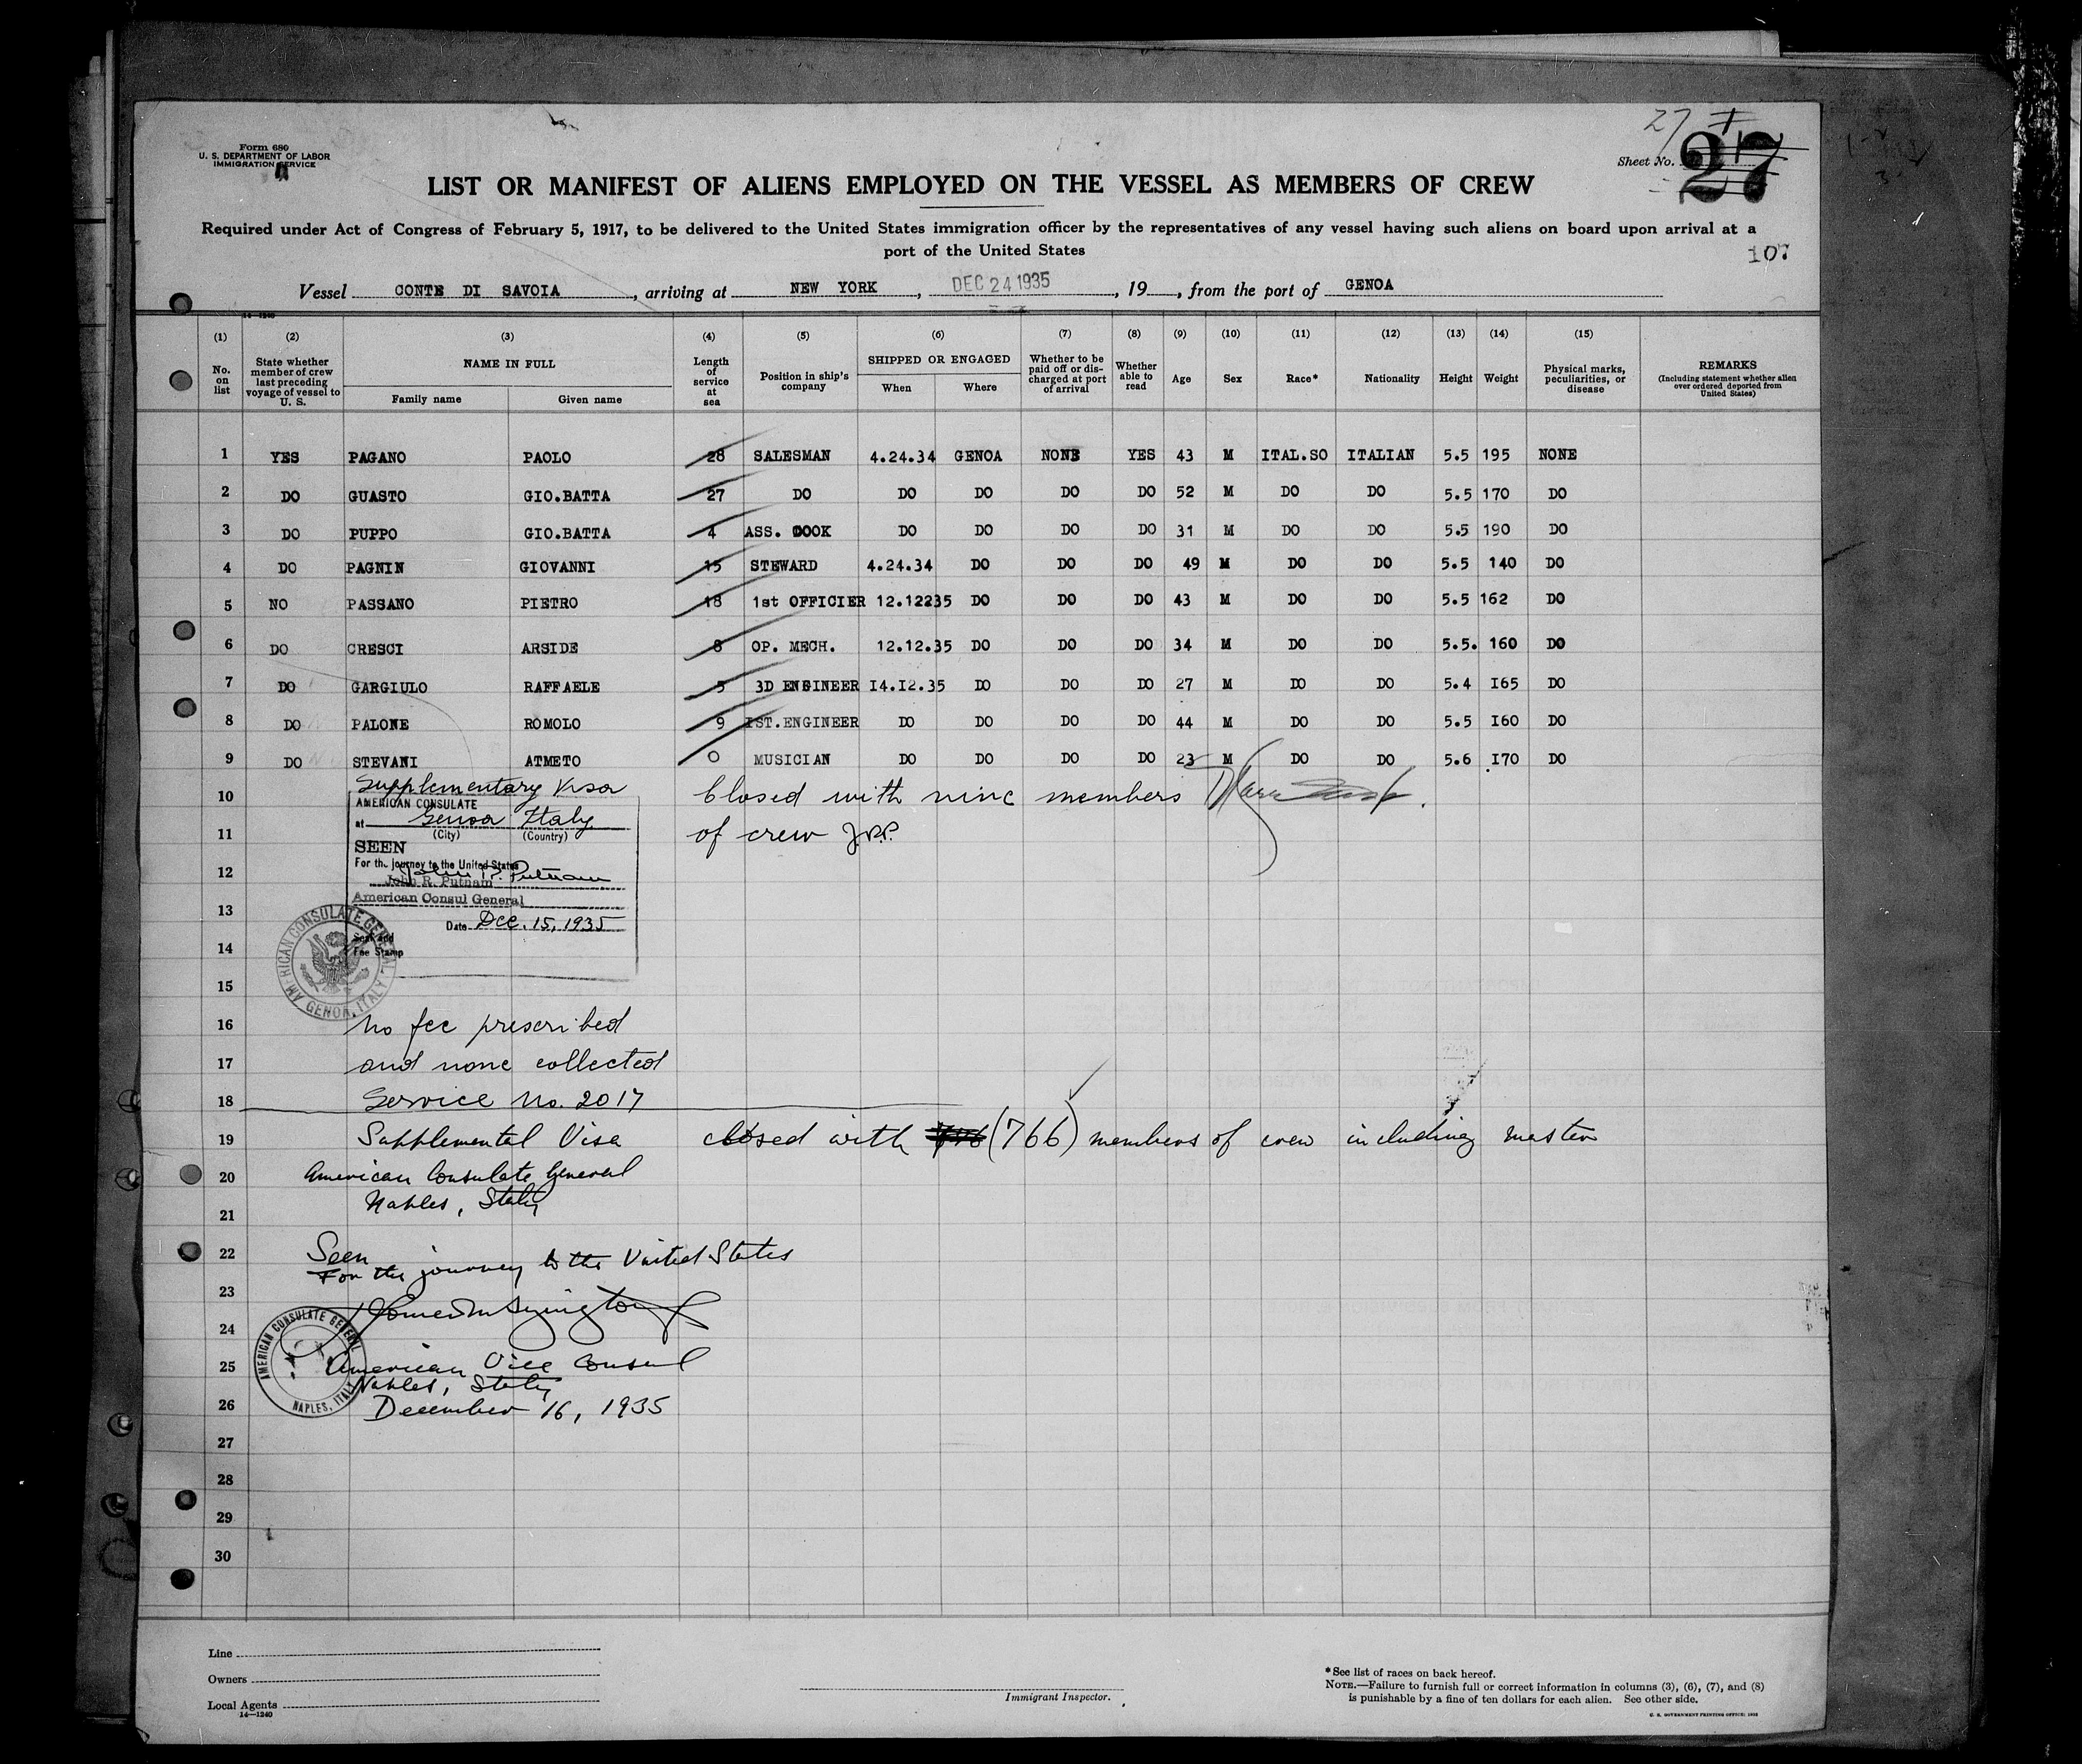 Form 680
U. S. DEPARTMENT OF LABOR
IMMIGRATION SERVICE
27
Sheet No. 27
LIST OR MANIFEST OF ALIENS EMPLOYED ON THE VESSEL AS MEMBERS OF CREW
Required under Act of Congress of February 5, 1917, to be delivered to the United States immigration officer by the representatives of any vessel having such aliens on board upon arrival at a
port of the United States
107
Vessel CONTE DI SAVOIA, arriving at NEW YORK, DEC 24 1935, 19, from the port of GENOA
14—1240
(1) (2) (3) (4) (5) (6) (7) (8) (9) (10) (11) (12) (13) (14) (15)
No. on list
State whether member of crew last preceding voyage of vessel to U. S.
NAME IN FULL
Family name Given name
Length of service at sea
Position in ship's company
SHIPPED OR ENGAGED
When Where
Whether to be paid off or dis- charged at port of arrival
Whether able to read
Age Sex Race* Nationality Height Weight
Physical marks, peculiarities, or disease
REMARKS
(Including statement whether alien ever ordered deported from United States)
1 YES PAGANO PAOLO 28 SALESMAN 4.24.34 GENOA NONE YES 43 M ITAL.SO ITALIAN 5.5 195 NONE
2 DO GUASTO GIO.BATTA 27 DO DO DO DO DO 52 M DO DO 5.5 170 DO
3 DO PUPPO GIO.BATTA 4 ASS. COOK DO DO DO DO 31 M DO DO 5.5 190 DO
4 DO PAGNIN GIOVANNI 15 STEWARD 4.24.34 DO DO DO 49 M DO DO 5.5 140 DO
5 NO PASSANO PIETRO 18 1st OFFICIER 12.12235 DO DO DO 43 M DO DO 5.5 162 DO
6 DO CRESCI ARSIDE 8 OP. MECH. 12.12.35 DO DO DO 34 M DO DO 5.5. 160 DO
7 DO GARGIULO RAFFAELE 5 3D ENGINEER I4.I2.35 DO DO DO 27 M DO DO 5.4 I65 DO
8 DO PALONE ROMOLO 9 IST.ENGINEER DO DO DO DO 44 M DO DO 5.5 I60 DO
9 DO STEVANI ATMETO 0 MUSICIAN DO DO DO DO 23 M DO DO 5.6 I70 DO
Supplementary Visa
10 closed with nine members
AMERICAN CONSULATE
at Genoa Italy
(City) (Country)
11 of crew J.R.P.
SEEN
For the journey to the United States
12 John R. Putnam
John R. Putnam
American Consul General
13 Date Dec. 15, 1935
Seal and
14 Fee Stamp
AMERICAN CONSULATE GENERAL GENOA, ITALY
15
16 no fee prescribed
17 and none collected
18 Service No. 2017
19 Supplemental Visa closed with (766) members of crew including master
20 American Consulate General
21 Naples, Italy
22 Seen
For the journey to the United States
23
24
AMERICAN CONSULATE GENERAL NAPLES, ITALY
25 American Vice Consul
Naples, Italy
26 December 16, 1935
27
28
29
30
Line
Owners
Local Agents
14—1240
Immigrant Inspector.
*See list of races on back hereof.
NOTE.—Failure to furnish full or correct information in columns (3), (6), (7), and (8)
is punishable by a fine of ten dollars for each alien. See other side.